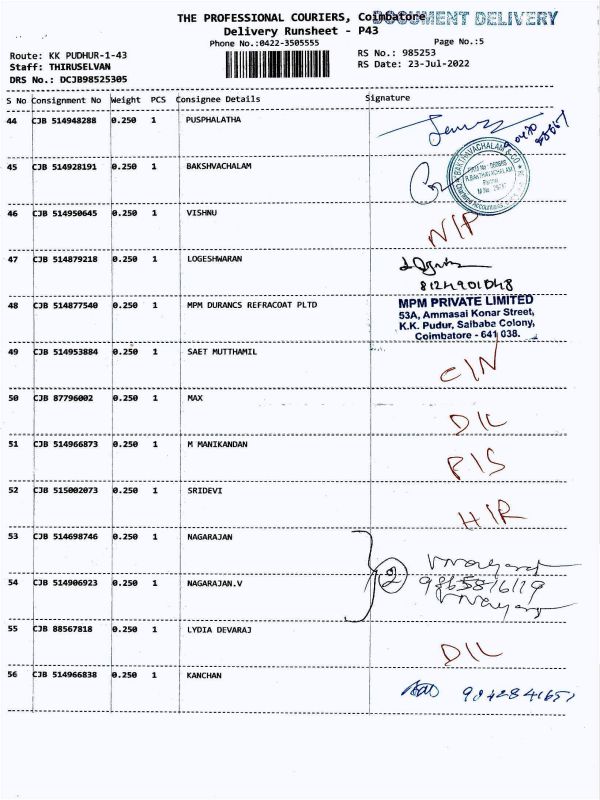 THE PROFESSIONAL COURIERS, Coimbatore
DOCUMENT DELIVERY
Delivery Runsheet - P43
Phone No.:0422-3505555
Page No.:5
Route: KK PUDHUR-1-43
RS No.: 985253
Staff: THIRUSELVAN
RS Date: 23-Jul-2022
DRS No.: DCJB98525305
S No Consignment No Weight PCS Consignee Details Signature
44 CJB 514948288 0.250 1 PUSPHALATHA
45 CJB 514928191 0.250 1 BAKSHVACHALAM
46 CJB 514950645 0.250 1 VISHNU
N/P
47 CJB 514879218 0.250 1 LOGESHWARAN
8124901048
48 CJB 514877540 0.250 1 MPM DURANCS REFRACOAT PLTD
MPM PRIVATE LIMITED
53A, Ammasai Konar Street,
K.K. Pudur, Saibaba Colony,
Coimbatore - 641 038.
49 CJB 514953884 0.250 1 SAET MUTTHAMIL
C/N
50 CJB 87796002 0.250 1 MAX
D/L
51 CJB 514966873 0.250 1 M MANIKANDAN
52 CJB 515002073 0.250 1 SRIDEVI
53 CJB 514698746 0.250 1 NAGARAJAN
2
54 CJB 514906923 0.250 1 NAGARAJAN.V
9865816119
55 CJB 88567818 0.250 1 LYDIA DEVARAJ
D/L
56 CJB 514966838 0.250 1 KANCHAN